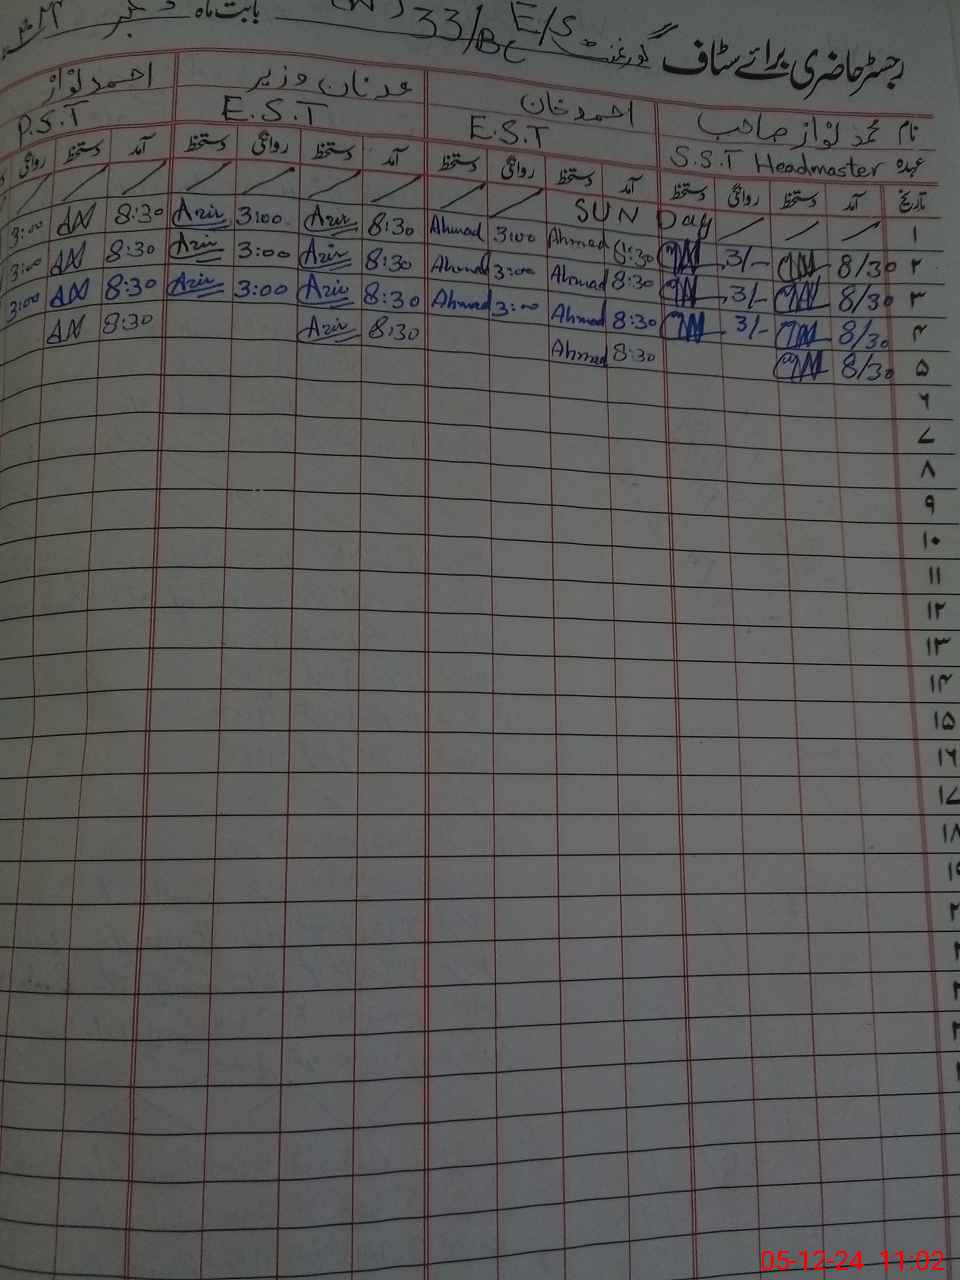 رجسٹر حاضری برائے سٹاف گورنمنٹ E/S 33/BC بابت ماہ دسمبر
نام محمد نواز صاحب احمد خان عدنان وزیر احمد نواز
عہدہ S.S.T Headmaster E.S.T E.S.T P.S.T
تاریخ آمد دستخط روانگی دستخط آمد دستخط روانگی دستخط آمد دستخط روانگی دستخط آمد دستخط روانگی
۱ SUN Day
۲ 8/30 3/- 8:30 Ahmad 3:00 Ahmad 8:30 Azir 3:00 Azir 8:30 AN 3:00
۳ 8/30 3/- 8:30 Ahmad 3:00 Ahmad 8:30 Azir 3:00 Azir 8:30 AN 3:00
۴ 8/30 3/- 8:30 Ahmad 3:00 Ahmad 8:30 Azir 3:00 Azir 8:30 AN 3:00
۵ 8/30 8:30 Ahmad 8:30 Azir 8:30 AN
۶
۷
۸
۹
۱۰
۱۱
۱۲
۱۳
۱۴
۱۵
۱۶
۱۷
۱۸
05-12-24 11:02